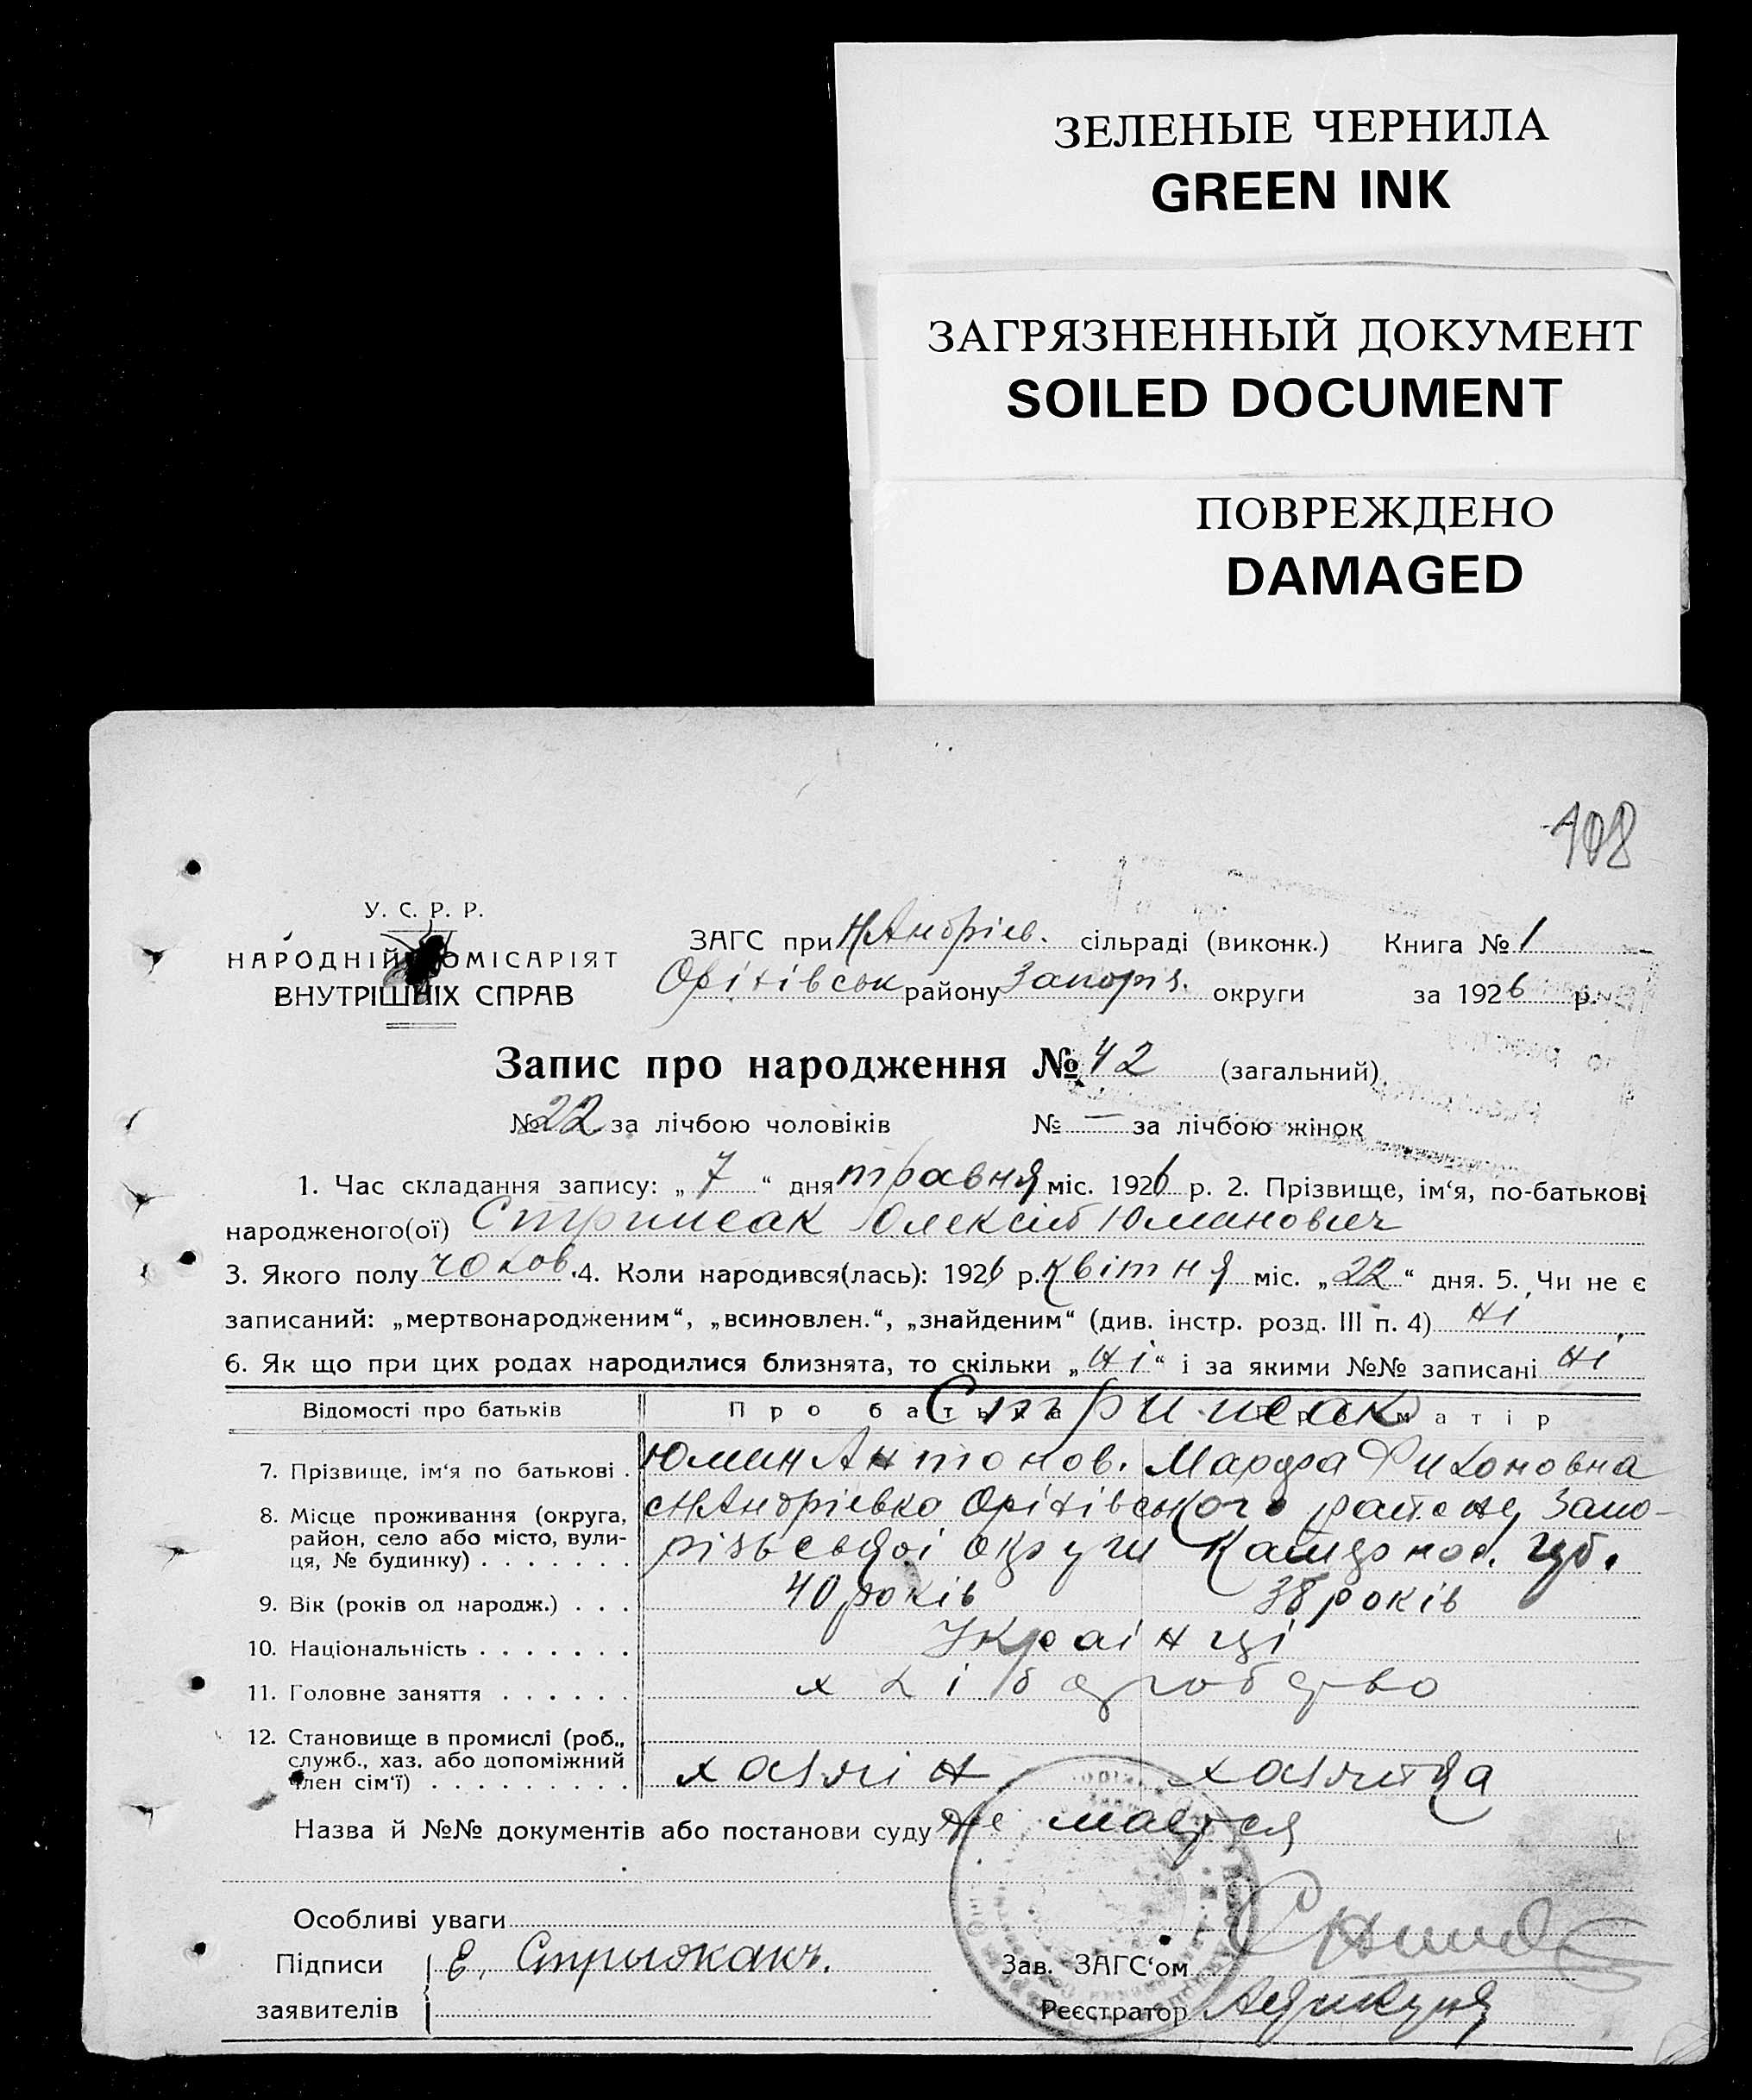 ЗЕЛЕНЫЕ ЧЕРНИЛА
GREEN INK
ЗАГРЯЗНЕННЫЙ ДОКУМЕНТ
SOILED DOCUMENT
ПОВРЕЖДЕНО
DAMAGED
108
У. С. Р. Р.
НАРОДНІЙ КОМІСАРІЯТ
ВНУТРІШНІХ СПРАВ
ЗАГС при Н Андріев. сільраді (виконк.) Книга № 1
Оріхівськ району Запоріз. округи за 1926 р.
Запис про народження № 42 (загальний)
№ 22 за лічбою чоловіків № — за лічбою жінок
1. Час складання запису: „ 7 “ дня травня міс. 1926 р. 2. Прізвище, ім‘я, по-батькові
народженого(ої) Стрижак Олексій Юминович
3. Якого полу чолов. 4. Коли народився(лась): 1926 р. квітня міс. „ 22 “ дня. 5. Чи не є
записаний: „мертвонародженим“, „всиновлен.“, „знайденим“ (див. інстр. розд. III п. 4) ні
6. Як що при цих родах народилися близнята, то скільки „ ні “ і за якими №№ записані ні
Відомості про батьків Про батька Про матір
Стрижак
7. Прізвище, ім‘я по батькові . Юмин Антонов. Марфа Филоновна
8. Місце проживання (округа, район, село або місто, вулиця, № будинку) . . . . . . . с Н Андріевка Оріхівського района Запо-
різьської округи Катерноc. губ.
9. Вік (років од народж.) . . . 40 років 38 років
10. Національність . . . . . . . Украінці
11. Головне заняття . . . . . . хліборобство
12. Становище в промислі (роб., служб., хаз. або допоміжний член сім‘ї) . . . . . . . . . хазяін хазяйка
Назва й №№ документів або постанови суду Не мается
Особливі уваги
Підписи Е. Стрыжакъ. Зав. ЗАГС‘ом
заявителів Реєстратор